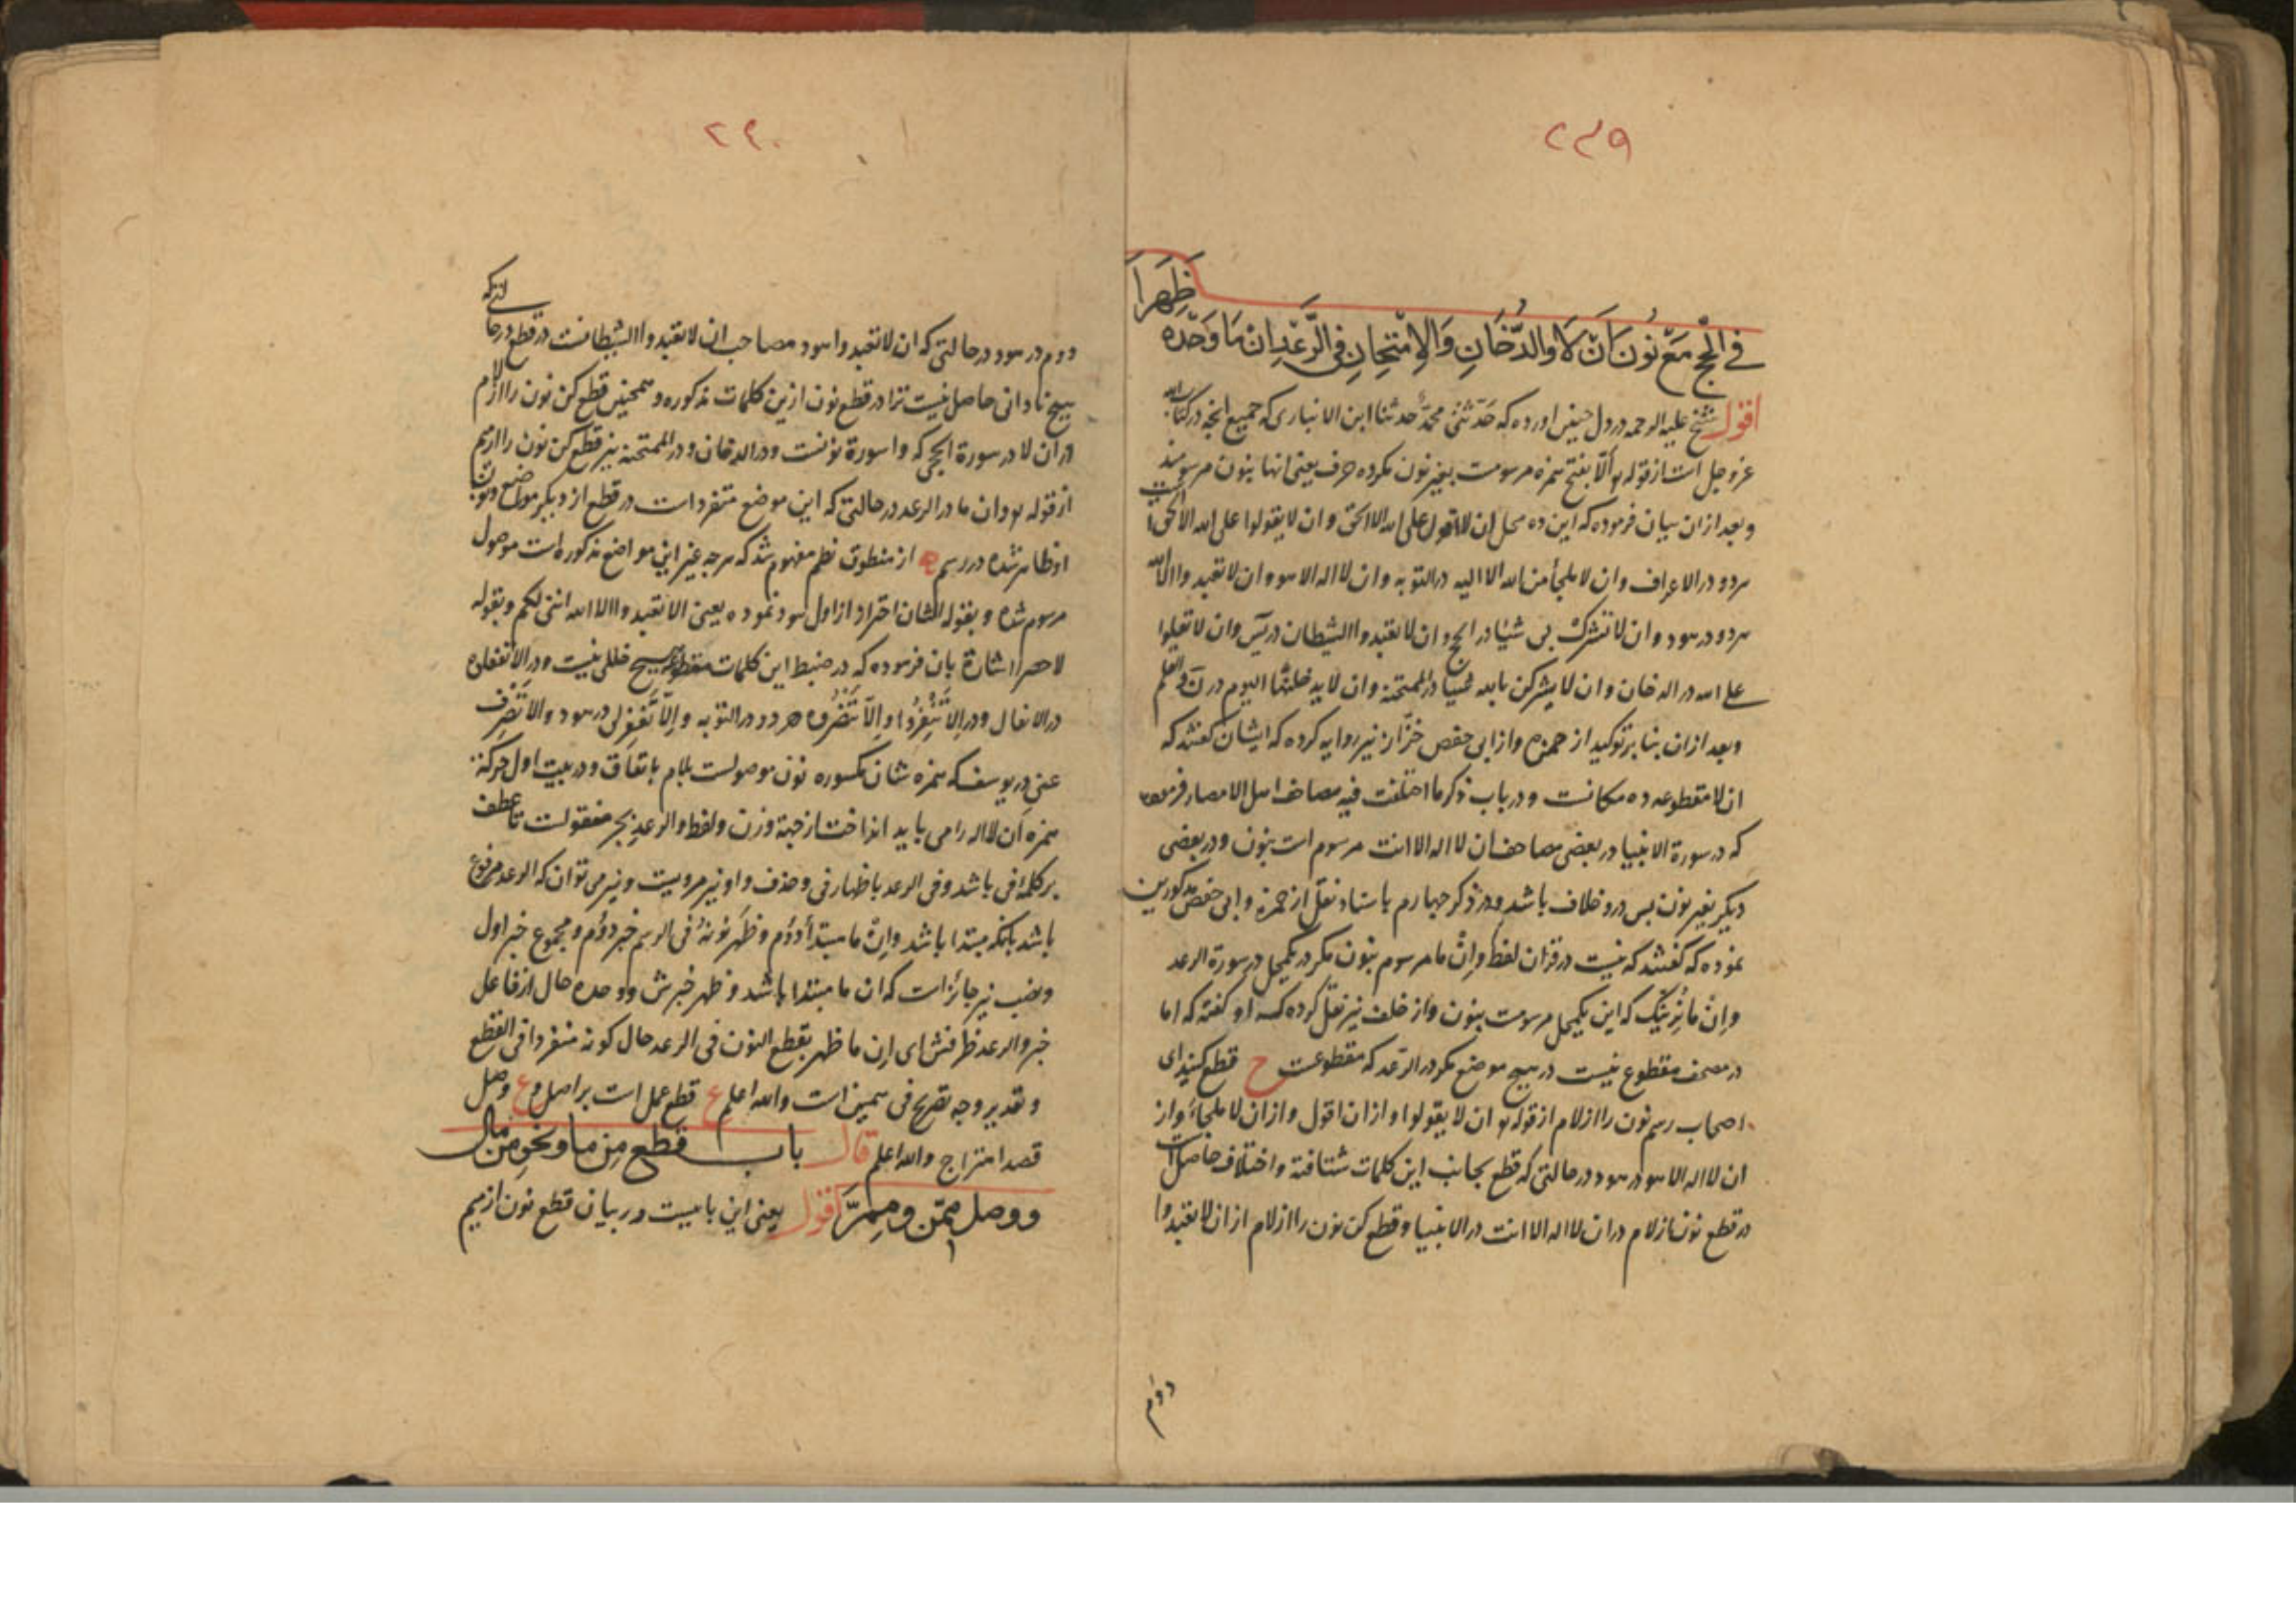 ٢٣٩
فِي الْحَجِّ مَعْ نُونَ أَنْ لَا وَالدُّخَانِ وَالْاِمْتِحَانِ فِي الرَّعْدِ اِنْ مَا وَحْدَهُ ظَهَرَا
اقول شیخ علیه الرحمه در اول چنین اورده که حَدّثنی محمّد حدثنا ابن الانباری که جمیع انچه در کتاب الله
عز وجل است از قوله و اَلّا بفتح همزه مرسومست بغیر نون مکر ده حرف یعنی انها بنون مرسومند
و بعد ازان بیان فرموده که این ده محل ان لا اقول علی الله الا الحق و ان لا یقولوا علی الله الا الحق است
هردو در الاعراف و ان لا ملجأ من الله الا الیه در التوبه و ان لا اله الا هو و ان لا تعبدوا الا الله
هردو در هود و ان لا تشرک بی شیئا در الحج و ان لا تعبدوا الشیطان در یس و ان لا تعلوا
علی الله در الدخان و ان لا یشرکن بالله شیئا در الممتحنه و ان لا یدخلنها الیوم در نَ والقلم
و بعد ازان بنا بر توکید از حمزه و از ابی حفص خزّاز نیز روایه کرده که ایشان کفتند که
ان لا مقطوعه ده مکانست و در باب ذکر ما اختلفت فیه مصاحف اهل الامصار فرموده
که در سورة الانبیا در بعضی مصاحف ان لا اله الا انت مرسوم است بنون و در بعضی
دیکر بغیر نون بس درو خلاف باشد و در ذکر چهارم باسناد نقل از حمزه و ابی حفص مذکورین
نموده که کفتند که نیست در قران لفظ و اِنْ ما مرسوم بنون مکر در یکمحل در سورة الرعد
و اِنْ ما نُرِیَنَّک که این یکمحل مرسومست بنون و از خلف نیز نقل کرده که او کفته که اما
در مصحف مقطوع نیست در هیچ موضع مکر در الرّعد که مقطوعست ح قطع کنید ای
اصحاب رسم نون را از لام از قوله ان لا یقولوا و از ان لا اقول و از ان لا ملجأ و از
ان لا اله الا هو در هود در حالتی که قطع بجانب این کلمات شتافته و اختلاف حاصل است
در قطع نون از لام در ان لا اله الا انت در الانبیا و قطع کن نون را از لام از ان لا تعبدوا
دوم
٢٤٠
دوم در هود در حالتی که ان لا تعبدوا هود مصاحب ان لا تعبدوا الشیطانست در قطع در حالتی که
هیچ نادانی حاصل نیست ترا در قطع نون ازین کلمات مذکوره و همچنین قطع کن نون را از لام
در ان لا در سورة الحجی که وا سورة نونست و در الدخان و در الممتحنه نیز قطع کن نون را از میم
از قوله و ان ما در الرعد در حالتی که این موضع متفرد است در قطع از دیکر مواضع و نون
او ظاهر شده در رسم از منطوق نظم مفهوم شد که هرچه غیر این مواضع مذکوره است موصول
مرسوم شده و بقوله الثان احتراز از اول هود نموده یعنی الا تعبدوا الا الله اننی لکم و بقوله
لا حصر اشارة بان فرموده که در ضبط این کلمات مقطوعه هیچ خللی نیست و در الا تفعلوه
در الانفال و در اِلّا تَنْفِرُوا و اِلّا تَنْصُرُوه هردو در التوبه و اِلّا تَغْفِرْ لی در هود و الّا تَصْرِف
عنی در یوسف که همزه شان مکسوره نون موصولست بلام باتفاق و در بیت اول حرکة
همزه اَن لا اله را می باید انداخت از جهة وزن و لفظ و الرعد بجر منقولست تا عطف
بر کلمه فی باشد و فی الرعد باظهار فی و حذف واو نیز مرویست و نیز می توان که الرعد مرفوع
باشد بانکه مبتدا باشد و اِنْ ما مبتدأ دوم و ظَهَرَ نُونُهُ فی الرسم خبر دوم و مجموع خبر اول
و نصب نیز جائز است که ان ما مبتدا باشد و ظهر خبرش و وحده حال از فاعل
خبر و الرعد ظرفش ای اِن ما ظهر بقطع النون فی الرعد حال کونه منفردا فی القطع
و تقدیر وجه تصریح فی همین است والله اعلم ع قطع عمل است بر اصل وع وصل
قصد امتزاج والله اعلم قال باب قطع مِن ما و نحوِ مِن مالِ
و وصل مِمَّن و مِمَّ اقول یعنی این بابیست در بیان قطع نون از میم